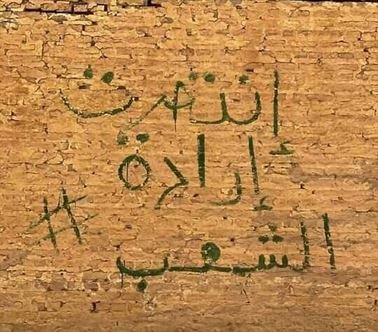 إنتصرت
إرادة
الشعب
#